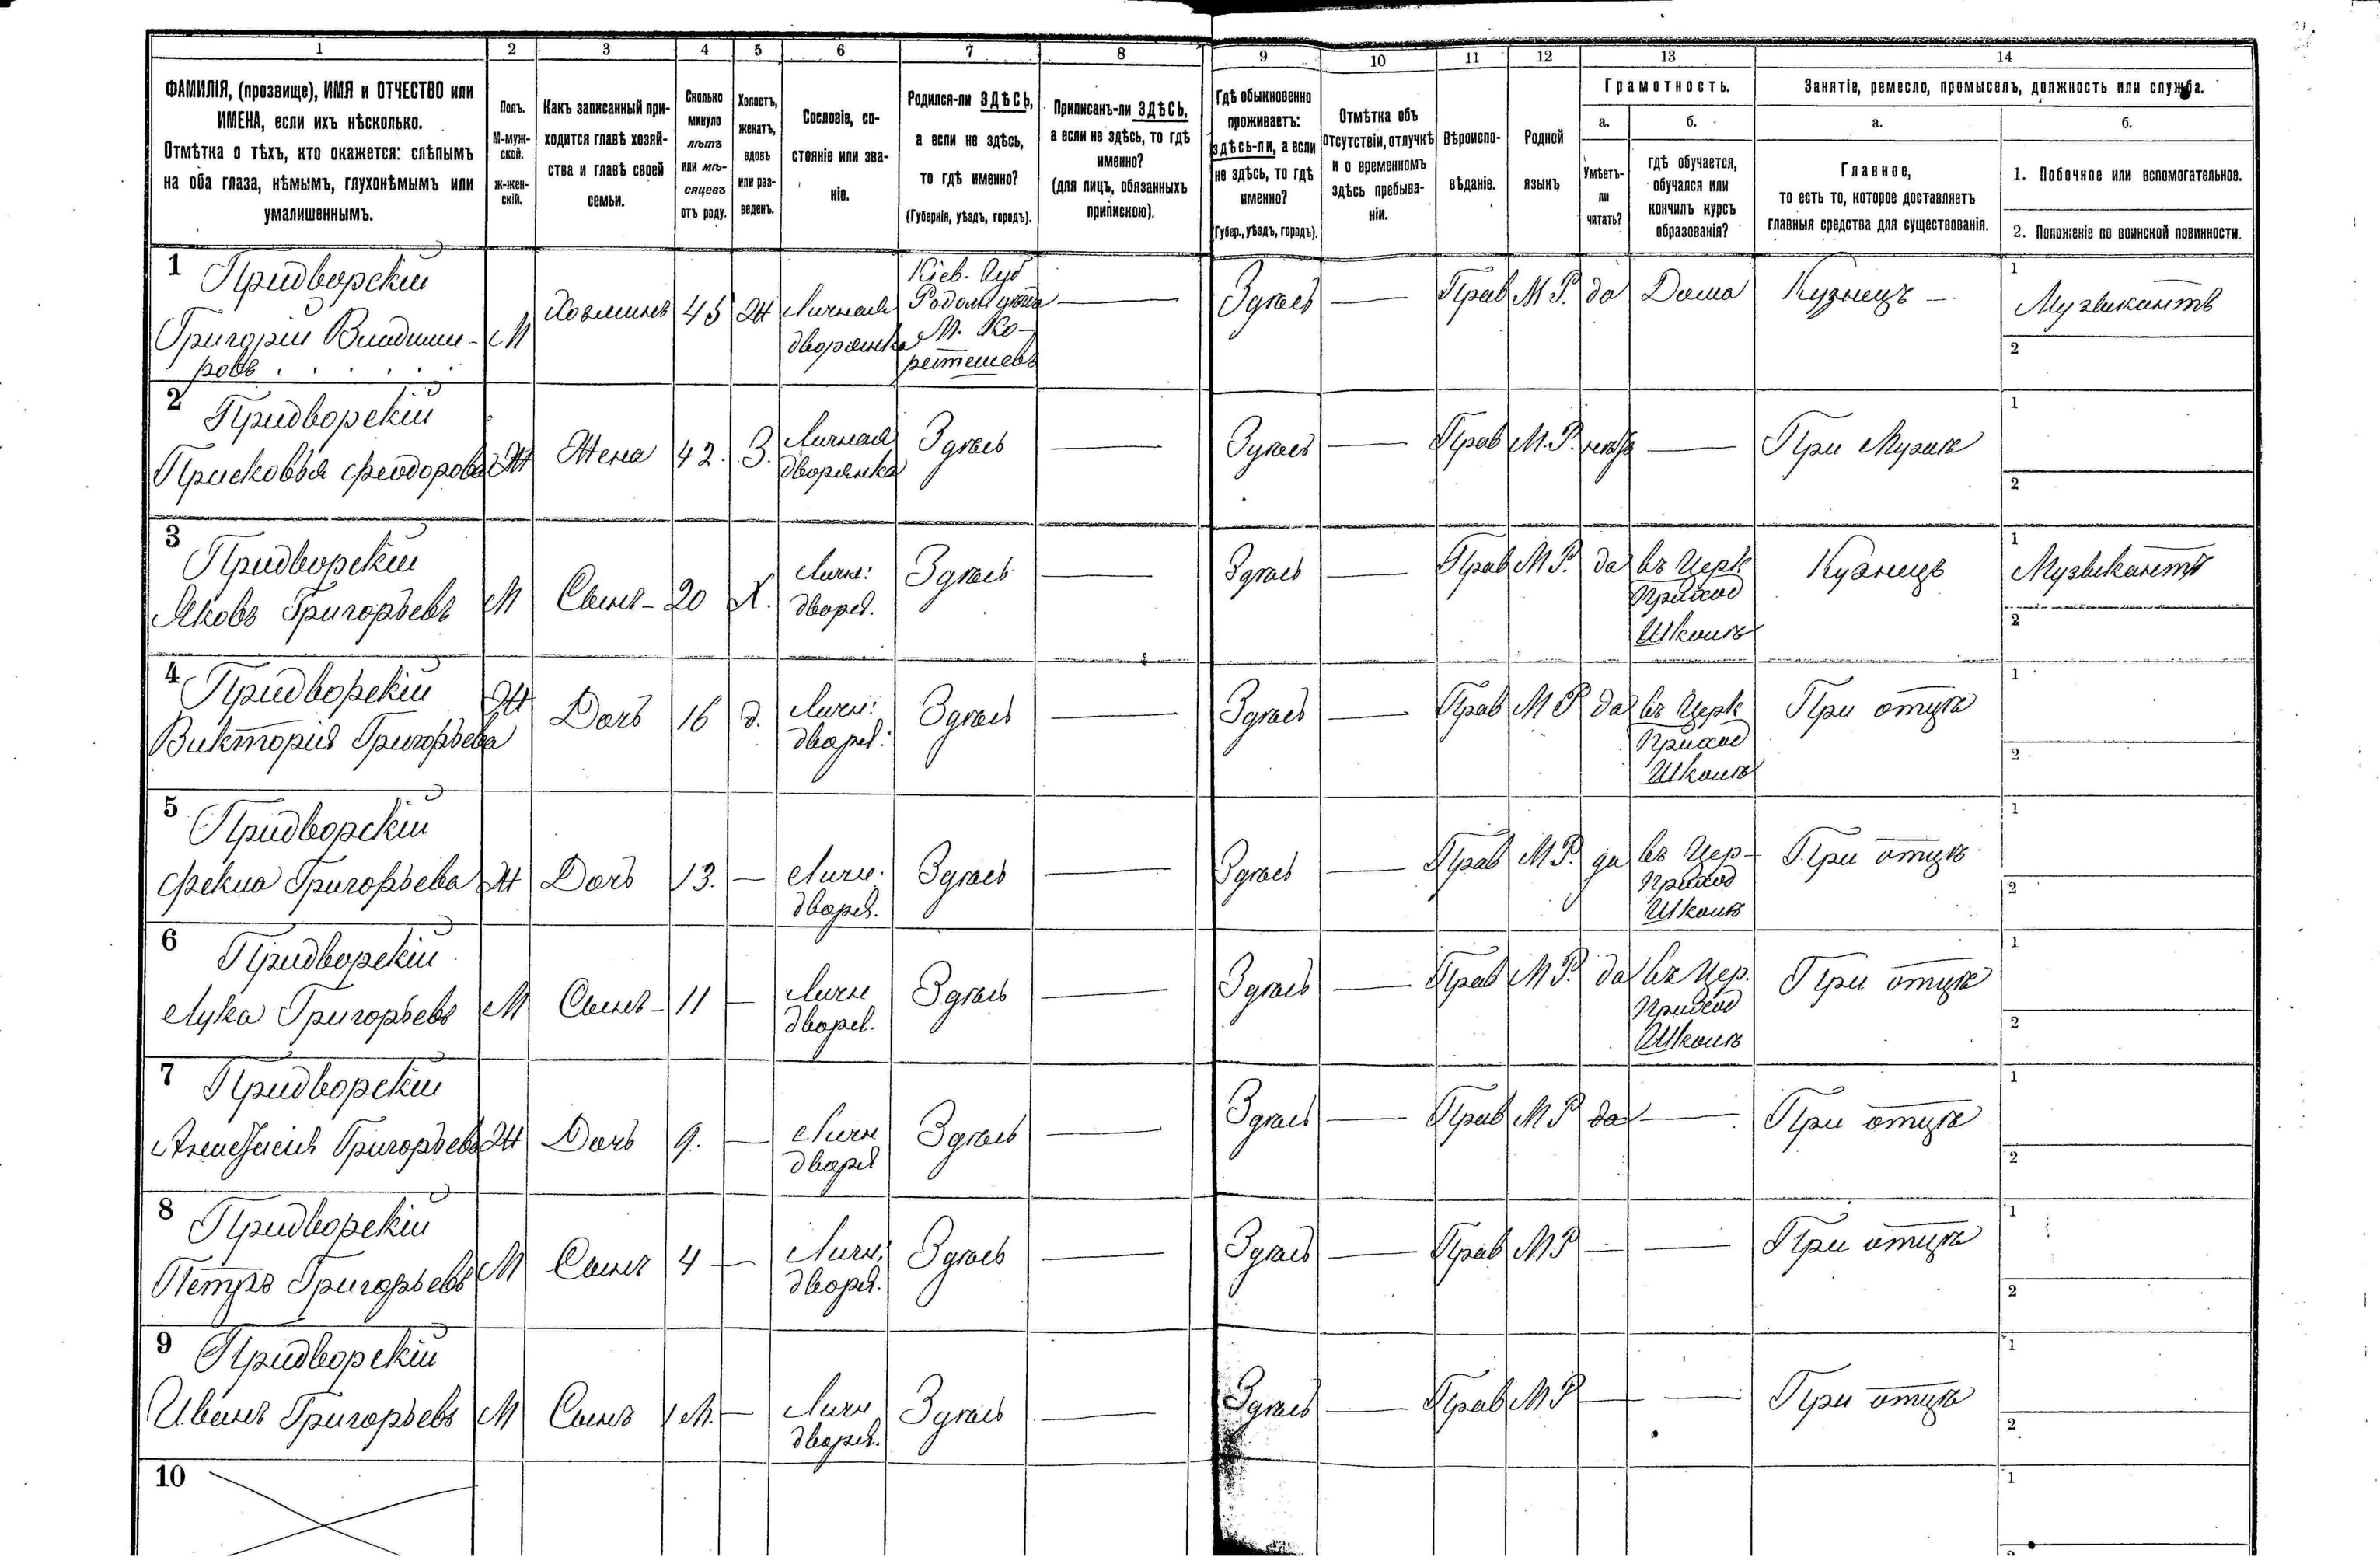 1 2 3 4 5 6 7 8 9 10 11 12 13 14
ФАМИЛІЯ, (прозвище), ИМЯ и ОТЧЕСТВО или
ИМЕНА, если ихъ нѣсколько.
Отмѣтка о тѣхъ, кто окажется: слѣпымъ
на оба глаза, нѣмымъ, глухонѣмымъ или
умалишеннымъ.
Полъ.
М-муж-
ской.
ж-жен-
скій.
Какъ записанный при-
ходится главѣ хозяй-
ства и главѣ своей
семьи.
Сколько
минуло
лѣтъ
или мѣ-
сяцевъ
отъ роду.
Холостъ,
женатъ,
вдовъ
или раз-
веденъ.
Сословіе, со-
стояніе или зва-
ніе.
Родился-ли ЗДѢСЬ,
а если не здѣсь,
то гдѣ именно?
(Губернія, уѣздъ, городъ).
Приписанъ-ли ЗДѢСЬ,
а если не здѣсь, то гдѣ
именно?
(для лицъ, обязанныхъ
припискою).
Гдѣ обыкновенно
проживаетъ:
здѣсь-ли, а если
не здѣсь, то гдѣ
именно?
(Губер., уѣздъ, городъ).
Отмѣтка объ
отсутствіи, отлучкѣ
и о временномъ
здѣсь пребыва-
ніи.
Вѣроиспо-
вѣданіе.
Родной
языкъ
Грамотность.
а.
Умѣетъ-
ли
читать?
б.
гдѣ обучается,
обучался или
кончилъ курсъ
образованія?
Занятіе, ремесло, промыселъ, должность или служба.
а.
Главное,
то есть то, которое доставляетъ
главныя средства для существованія.
б.
1. Побочное или вспомогательное.
2. Положеніе по воинской повинности.
1
Придворскій
Григорій Владими-
ровъ
М
Хозяинъ
45
Ж
Личная
дворянка
Кіев. Губ
М. Ко-
Здѣсь
Прав
М Р.
да
Дома
Кузнецъ
1
Музыкантъ
2
2
Придворскій
Присковья Феодорова
Ж
Жена
42.
З.
Личная
дворянка
Здѣсь
Здѣсь
Прав
М. Р.
нетъ
При Мужѣ
1
2
3
Придворскій
Яковъ Григорьевъ
М
Сынъ
20
Х.
Личн:
дворя.
Здѣсь
Здѣсь
Прав
М Р.
да
въ Церк
Приход
Школѣ
Кузнецъ
1
Музыкантъ
2
4
Придворскій
Викторія Григорьева
Ж
Дочь
16
д.
Личн:
дворя:
Здѣсь
Здѣсь
Прав
М Р
да
въ Церк
Приход
Школѣ
При отцѣ
1
2
5
Придворскій
Фекла Григорьева
Ж
Дочь
13.
Личн.
дворя.
Здѣсь
Здѣсь
Прав
М Р.
да
въ Цер-
Приход
Школѣ
При отцѣ
1
2
6
Придворскій
Лука Григорьевъ
М
Сынъ
11
Личн
дворя.
Здѣсь
Здѣсь
Прав
М Р.
да
въ Цер.
Приход
Школѣ
При отцѣ
1
2
7
Придворскій
Григорьева
Ж
Дочь
9.
Личн
дворя
Здѣсь
Здѣсь
Прав
М Р
да
При отцѣ
1
2
8
Придворскій
Петръ Григорьевъ
М
Сынъ
4
Личн:
дворя.
Здѣсь
Здѣсь
Прав
М Р
При отцѣ
1
2
9
Придворскій
Иванъ Григорьевъ
М
Сынъ
1 М.
Личн
дворя.
Здѣсь
Здѣсь
Прав
М Р
При отцѣ
1
2
10
1